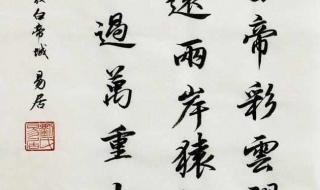 帝彩雲
兩岸猿
過萬重
白帝城 易居